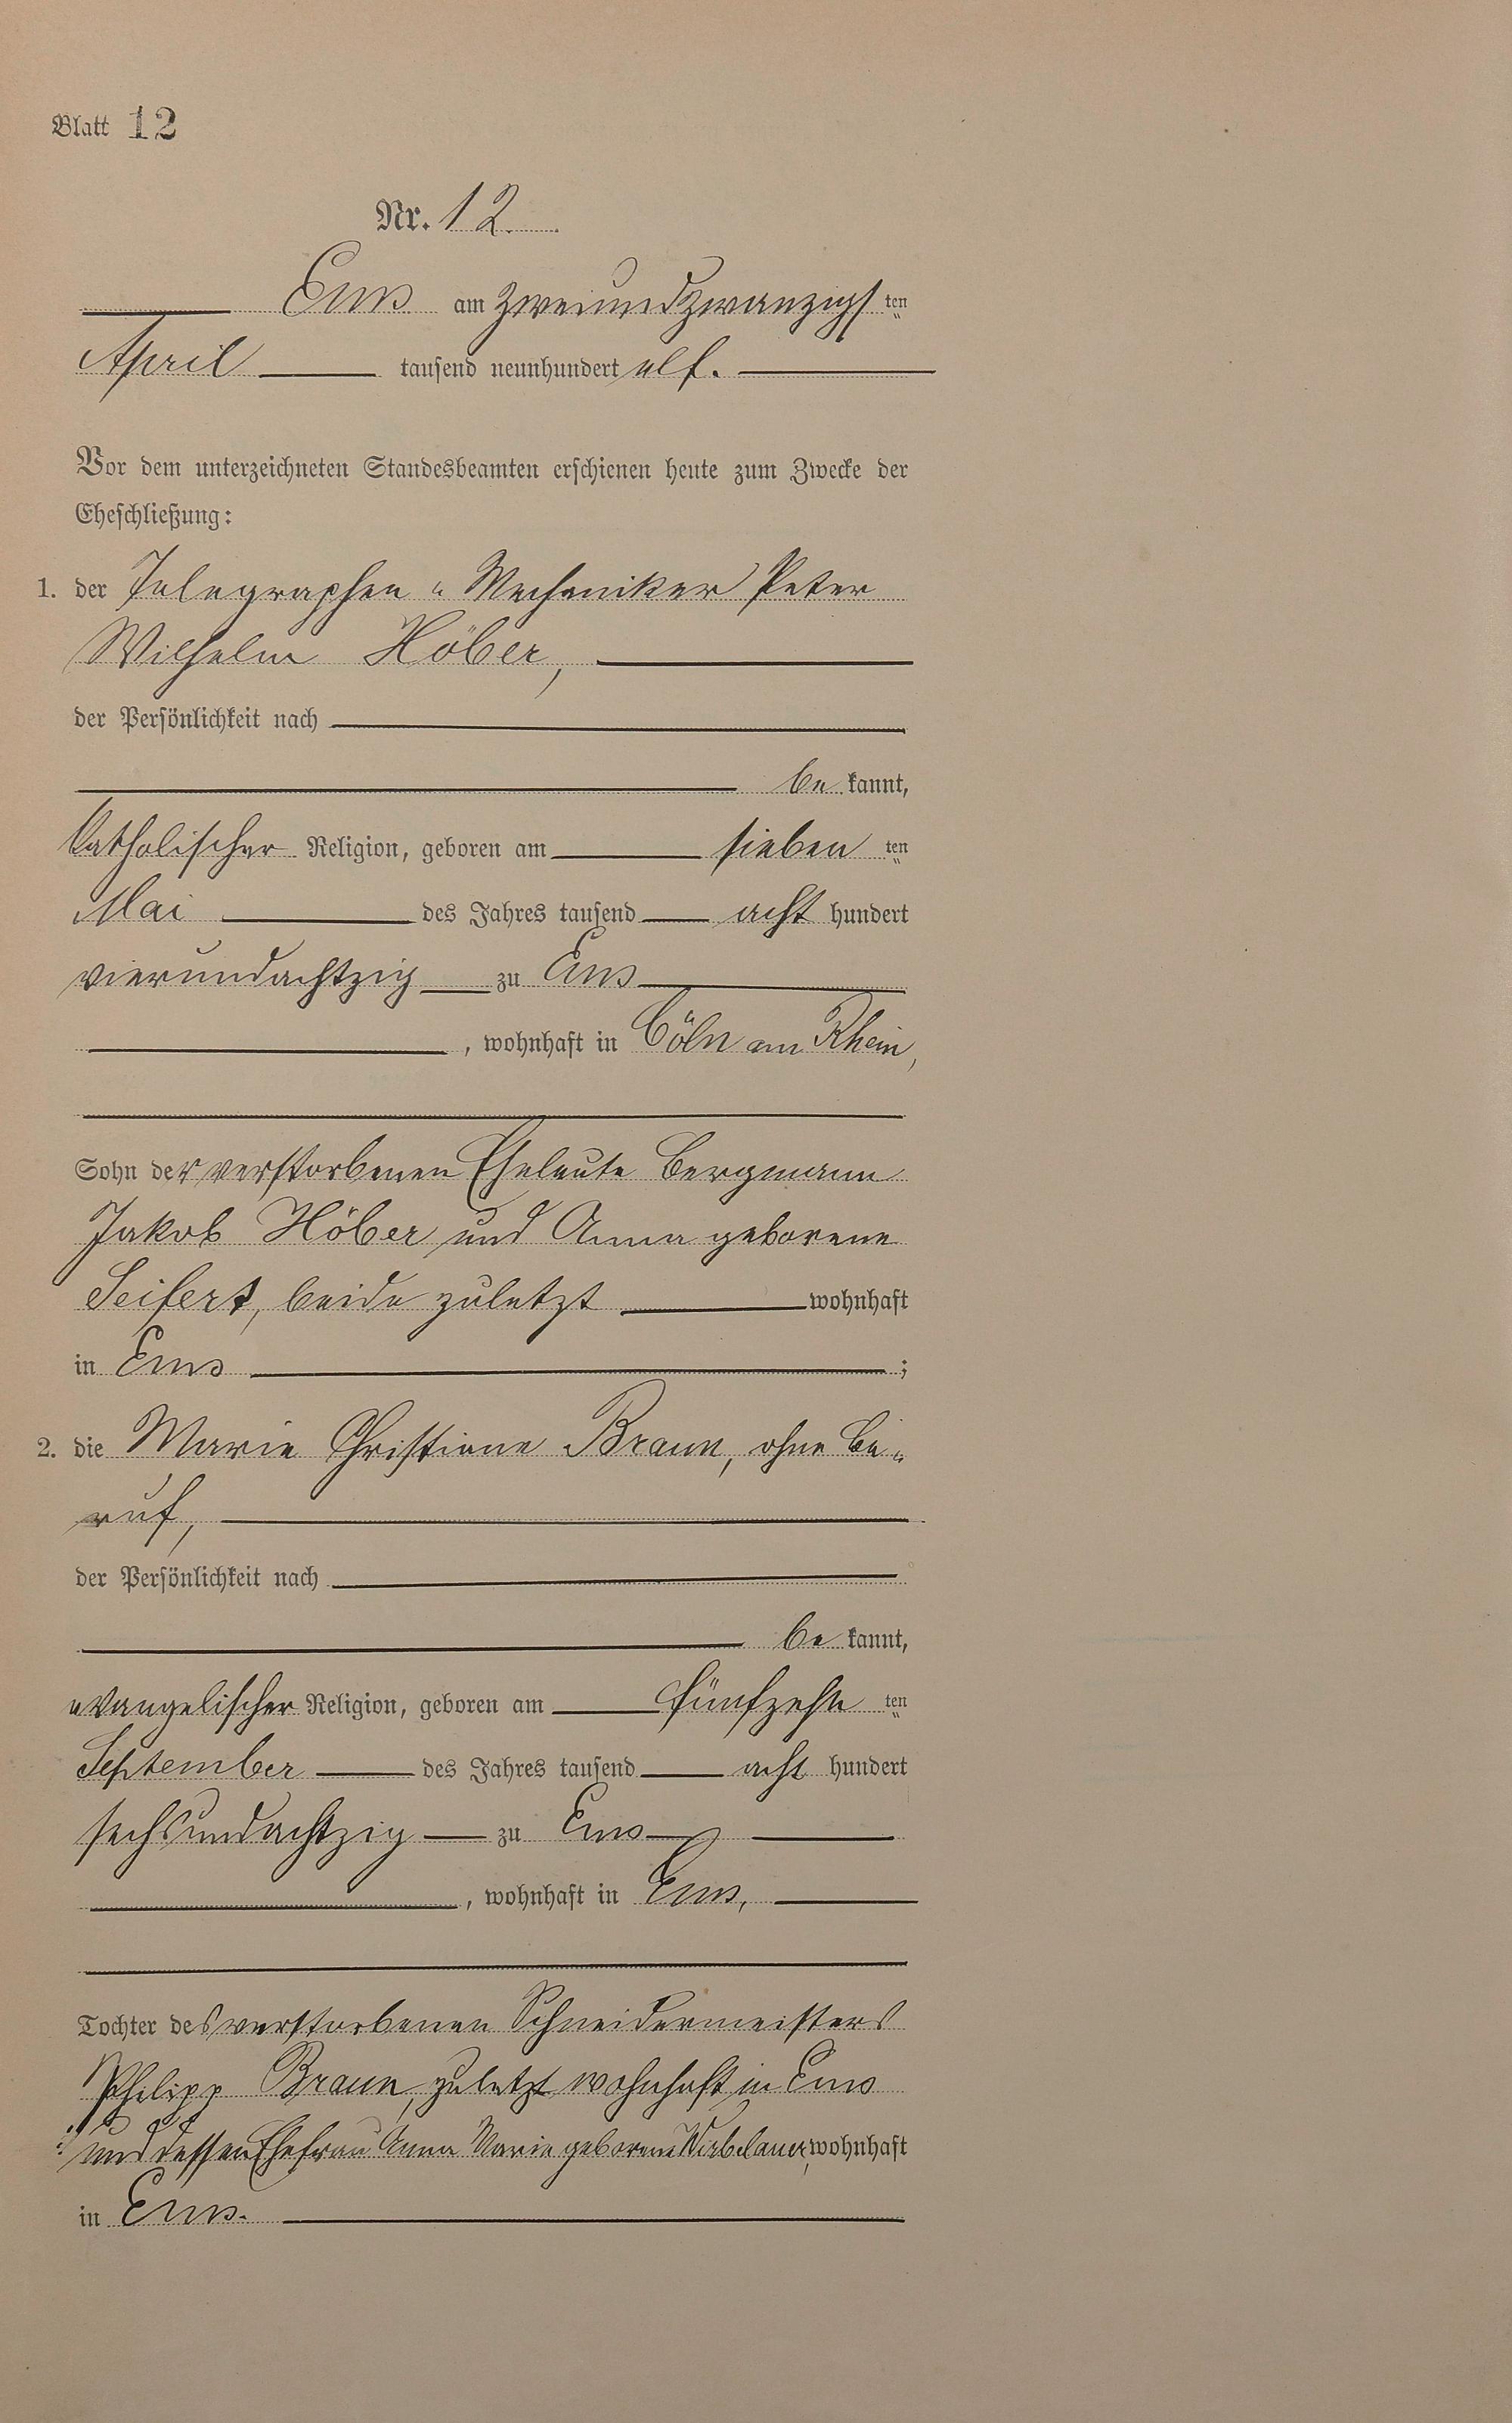 Blatt 12
Nr. 12.
Ems am zweiundzwanzigsten
April tausend neunhundert elf.
Vor dem unterzeichneten Standesbeamten erschienen heute zum Zwecke der
Eheschließung:
1. der Telegraphen-Mechaniker Peter
Wilhelm Höber,
der Persönlichkeit nach
be kannt,
katholischer Religion, geboren am sieben ten
Mai des Jahres tausend acht hundert
vierundachtzig zu Ems
, wohnhaft in Cöln am Rhein,
Sohn der verstorbenen Eheleute Bergmann
Jakob Höber und Anna geborene
Seifert, beide zuletzt wohnhaft
in Ems ;
2. die Marie Christiane Braun, ohne Be-
ruf,
der Persönlichkeit nach
be kannt,
evangelischer Religion, geboren am fünfzehn ten
September des Jahres tausend acht hundert
sechsundachtzig zu Ems
, wohnhaft in Ems,
Tochter des verstorbenen Schneidermeisters
Philipp Braun, zuletzt wohnhaft in Ems
und dessen Ehefrau Anna Marie geborene Wirbelauer, wohnhaft
in Ems.